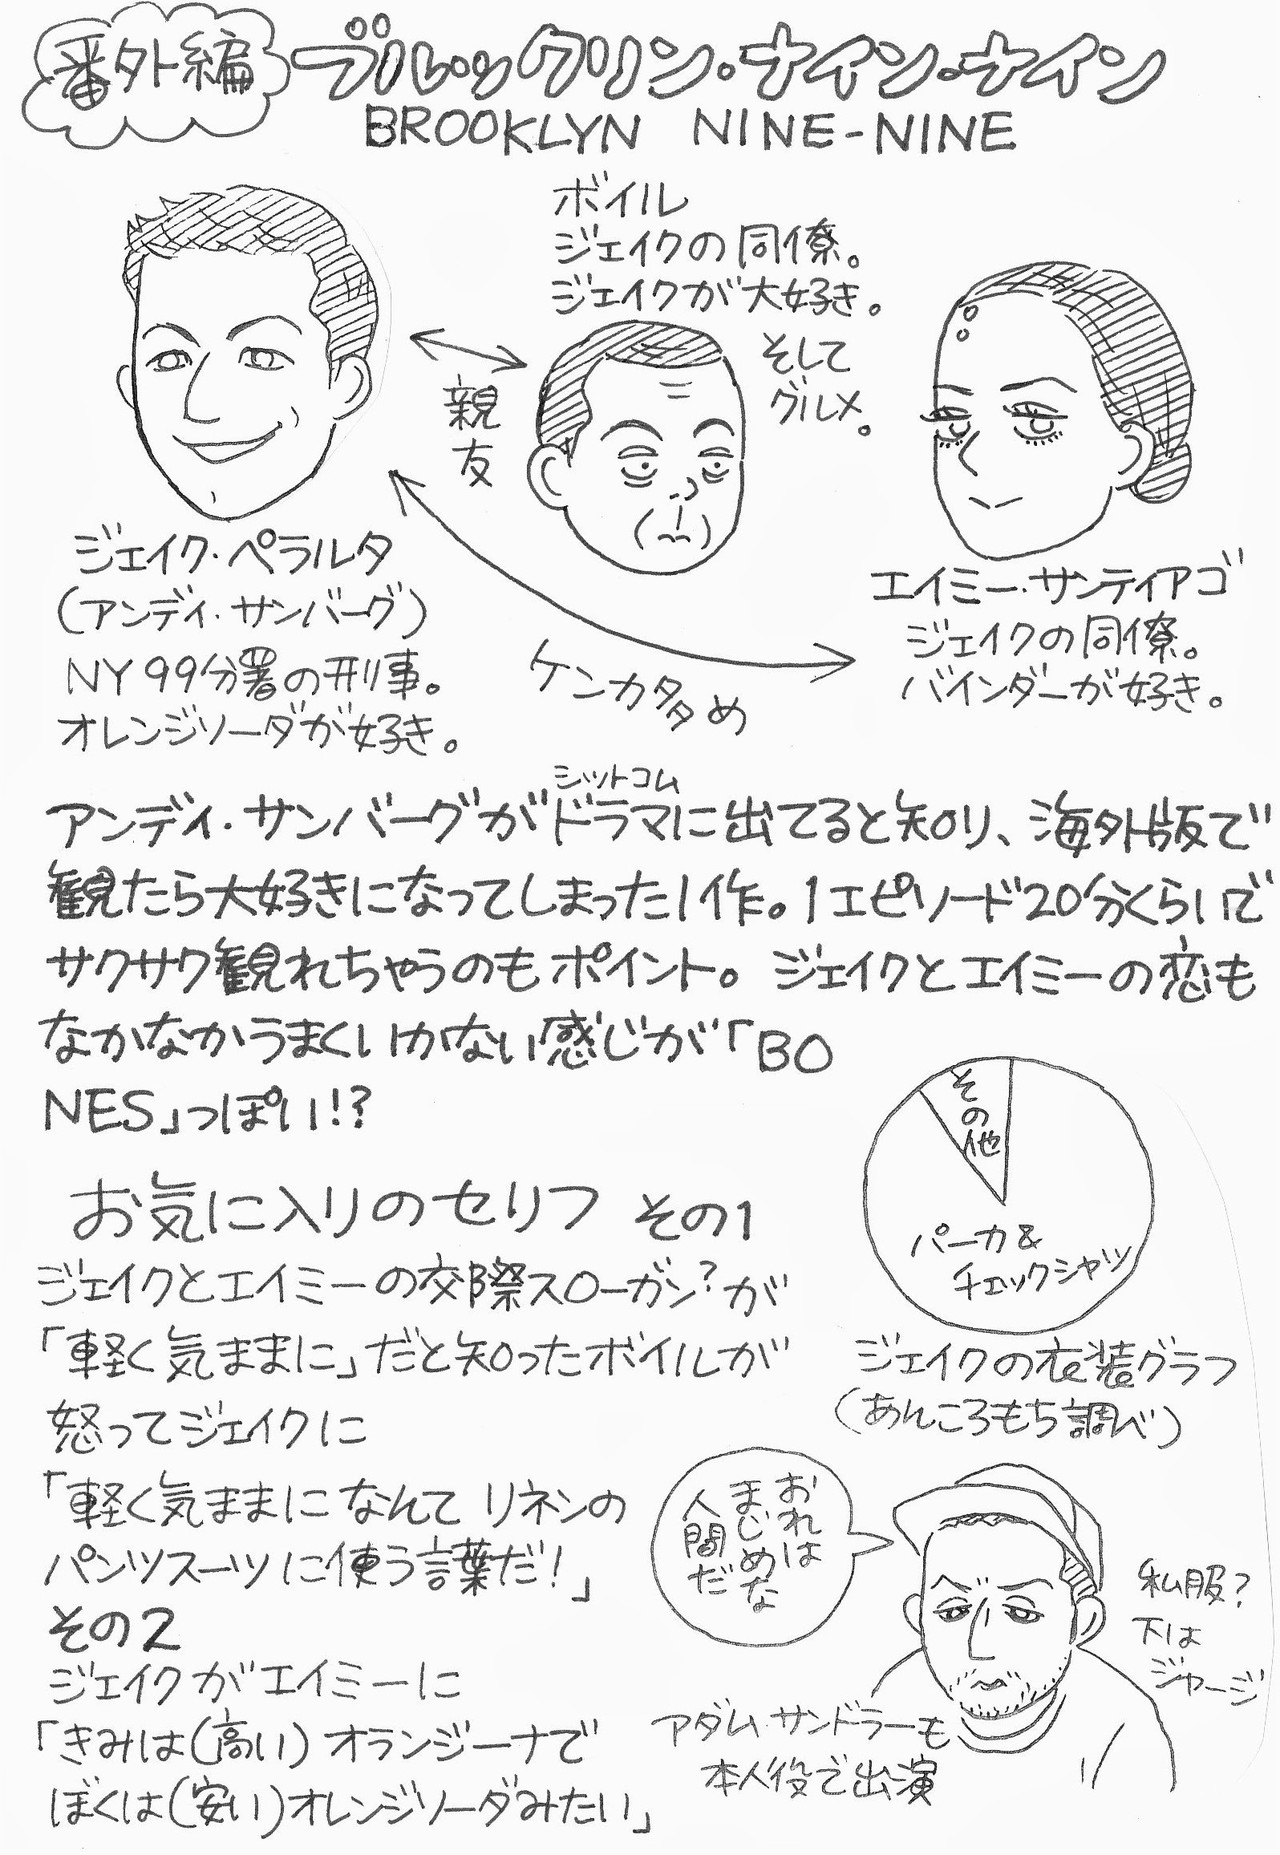 番外編
ブルックリン・ナイン・ナイン
BROOKLYN NINE-NINE
ボイル
ジェイクの同僚。
ジェイクが大好き。
そして
グルメ。
親友
ジェイク・ペラルタ
(アンディ・サンバーグ)
NY99分署の刑事。
オレンジソーダが好き。
エイミー・サンティアゴ
ジェイクの同僚。
バインダーが好き。
ケンカ多め
シットコム
アンディ・サンバーグがドラマに出てると知り、海外版で
観たら大好きになってしまった1作。1エピソード20分くらいで
サクサク観れちゃうのもポイント。ジェイクとエイミーの恋も
なかなかうまくいかない感じが「BO
NES」っぽい!?
お気に入りのセリフ その1
ジェイクとエイミーの交際スローガン?が
「軽く気ままに」だと知ったボイルが
怒ってジェイクに
「軽く気ままになんてリネンの
パンツスーツに使う言葉だ!」
その2
ジェイクがエイミーに
「きみは(高い)オランジーナで
ぼくは(安い)オレンジソーダみたい」
その他
パーカ&
チェックシャツ
ジェイクの衣装グラフ
(あんころもち調べ)
おれは
まじめな
人間だ
私服?
下は
ジャージ
アダム・サンドラーも
本人役で出演